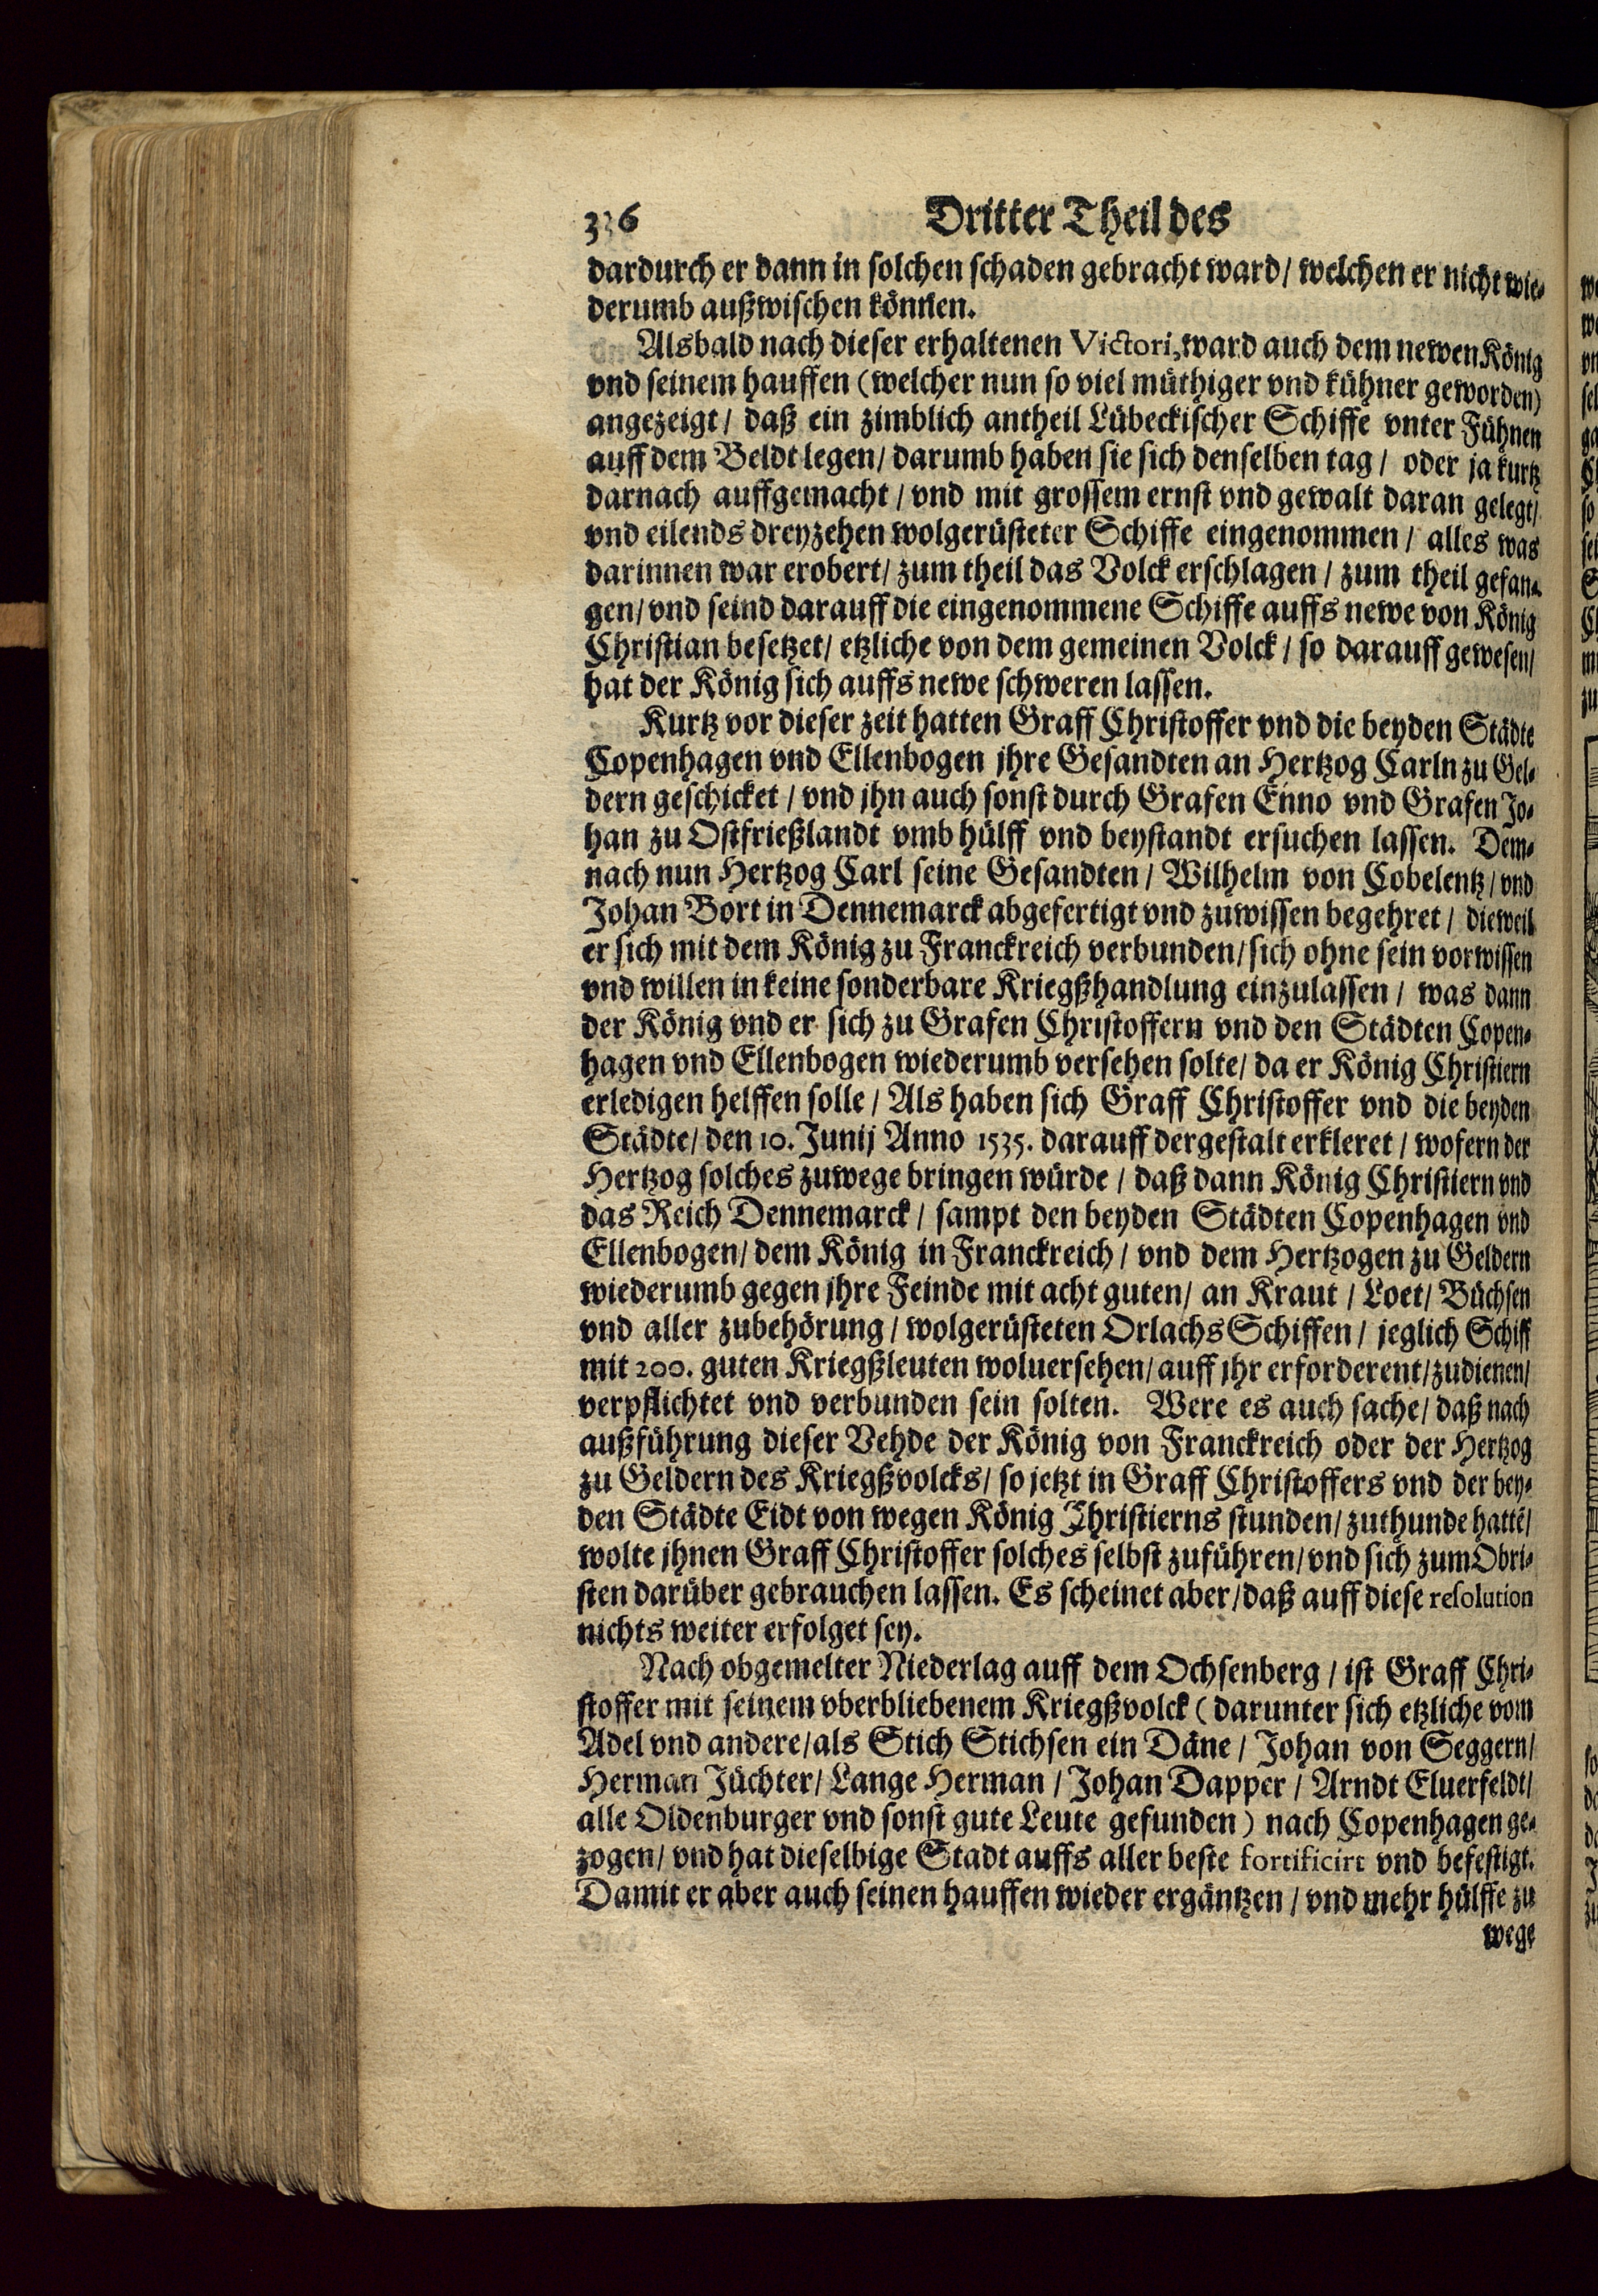 336 Dritter Theil des
dardurch er dann in solchen schaden gebracht ward / welchen er nicht wie-
derumb außwischen können.
Alsbald nach dieser erhaltenen Victori, ward auch dem newen König
vnd seinem hauffen (welcher nun so viel müthiger vnd kühner geworden)
angezeigt / daß ein zimblich antheil Lübeckischer Schiffe vnter Fühnen
auff dem Beldt legen / darumb haben sie sich denselben tag / oder ja kurtz
darnach auffgemacht / vnd mit grossem ernst vnd gewalt daran gelegt /
vnd eilends dreyzehen wolgerüsteter Schiffe eingenommen / alles was
darinnen war erobert / zum theil das Volck erschlagen / zum theil gefan-
gen / vnd seind darauff die eingenommene Schiffe auffs newe von König
Christian besetzet / etzliche von dem gemeinen Volck / so darauff gewesen /
hat der König sich auffs newe schweren lassen.
Kurtz vor dieser zeit hatten Graff Christoffer vnd die beyden Städte
Copenhagen vnd Ellenbogen jhre Gesandten an Hertzog Carln zu Gel-
dern geschicket / vnd jhn auch sonst durch Grafen Enno vnd Grafen Jo-
han zu Ostfrießlandt vmb hülff vnd beystandt ersuchen lassen. Dem-
nach nun Hertzog Carl seine Gesandten / Wilhelm von Cobelentz / vnd
Johan Bort in Dennemarck abgefertigt vnd zuwissen begehret / dieweil
er sich mit dem König zu Franckreich verbunden / sich ohne sein vorwissen
vnd willen in keine sonderbare Kriegßhandlung einzulassen / was dann
der König vnd er sich zu Grafen Christoffern vnd den Städten Copen-
hagen vnd Ellenbogen wiederumb versehen solte / da er König Christiern
erledigen helffen solle / Als haben sich Graff Christoffer vnd die beyden
Städte / den 10. Junij Anno 1535. darauff dergestalt erkleret / wofern der
Hertzog solches zuwege bringen würde / daß dann König Christiern vnd
das Reich Dennemarck / sampt den beyden Städten Copenhagen vnd
Ellenbogen / dem König in Franckreich / vnd dem Hertzogen zu Geldern
wiederumb gegen jhre Feinde mit acht guten / an Kraut / Loet / Büchsen
vnd aller zubehörung / wolgerüsteten Orlachs Schiffen / jeglich Schiff
mit 200. guten Kriegßleuten woluersehen / auff jhr erforderent / zudienen /
verpflichtet vnd verbunden sein solten. Were es auch sache / daß nach
außführung dieser Vehde der König von Franckreich oder der Hertzog
zu Geldern des Kriegßvolcks / so jetzt in Graff Christoffers vnd der bey-
den Städte Eidt von wegen König Christierns stunden / zuthunde hattē /
wolte jhnen Graff Christoffer solches selbst zuführen / vnd sich zum Obri-
sten darüber gebrauchen lassen. Es scheinet aber / daß auff diese resolution
nichts weiter erfolget sey.
Nach obgemelter Niederlag auff dem Ochsenberg / ist Graff Chri-
stoffer mit seinem vberbliebenem Kriegßvolck (darunter sich etzliche vom
Adel vnd andere / als Stich Stichsen ein Däne / Johan von Seggern /
Herman Jüchter / Lange Herman / Johan Dapper / Arndt Eluerfeldt /
alle Oldenburger vnd sonst gute Leute gefunden) nach Copenhagen ge-
zogen / vnd hat dieselbige Stadt auffs aller beste fortificirt vnd befestigt.
Damit er aber auch seinen hauffen wieder ergäntzen / vnd mehr hülffe zu
wege